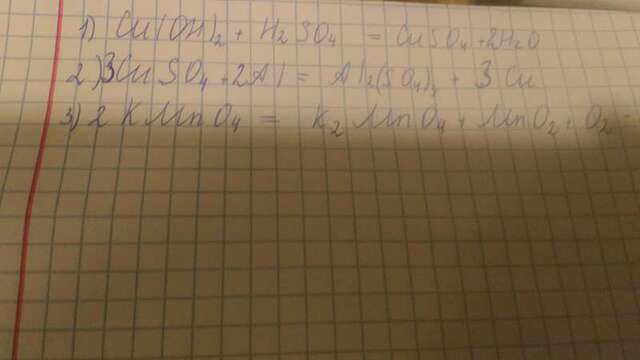 1) Cu(OH)2 + H2SO4 = CuSO4 + 2H2O
2) 3CuSO4 + 2Al = Al2(SO4)3 + 3Cu
3) 2KMnO4 = K2MnO4 + MnO2 + O2